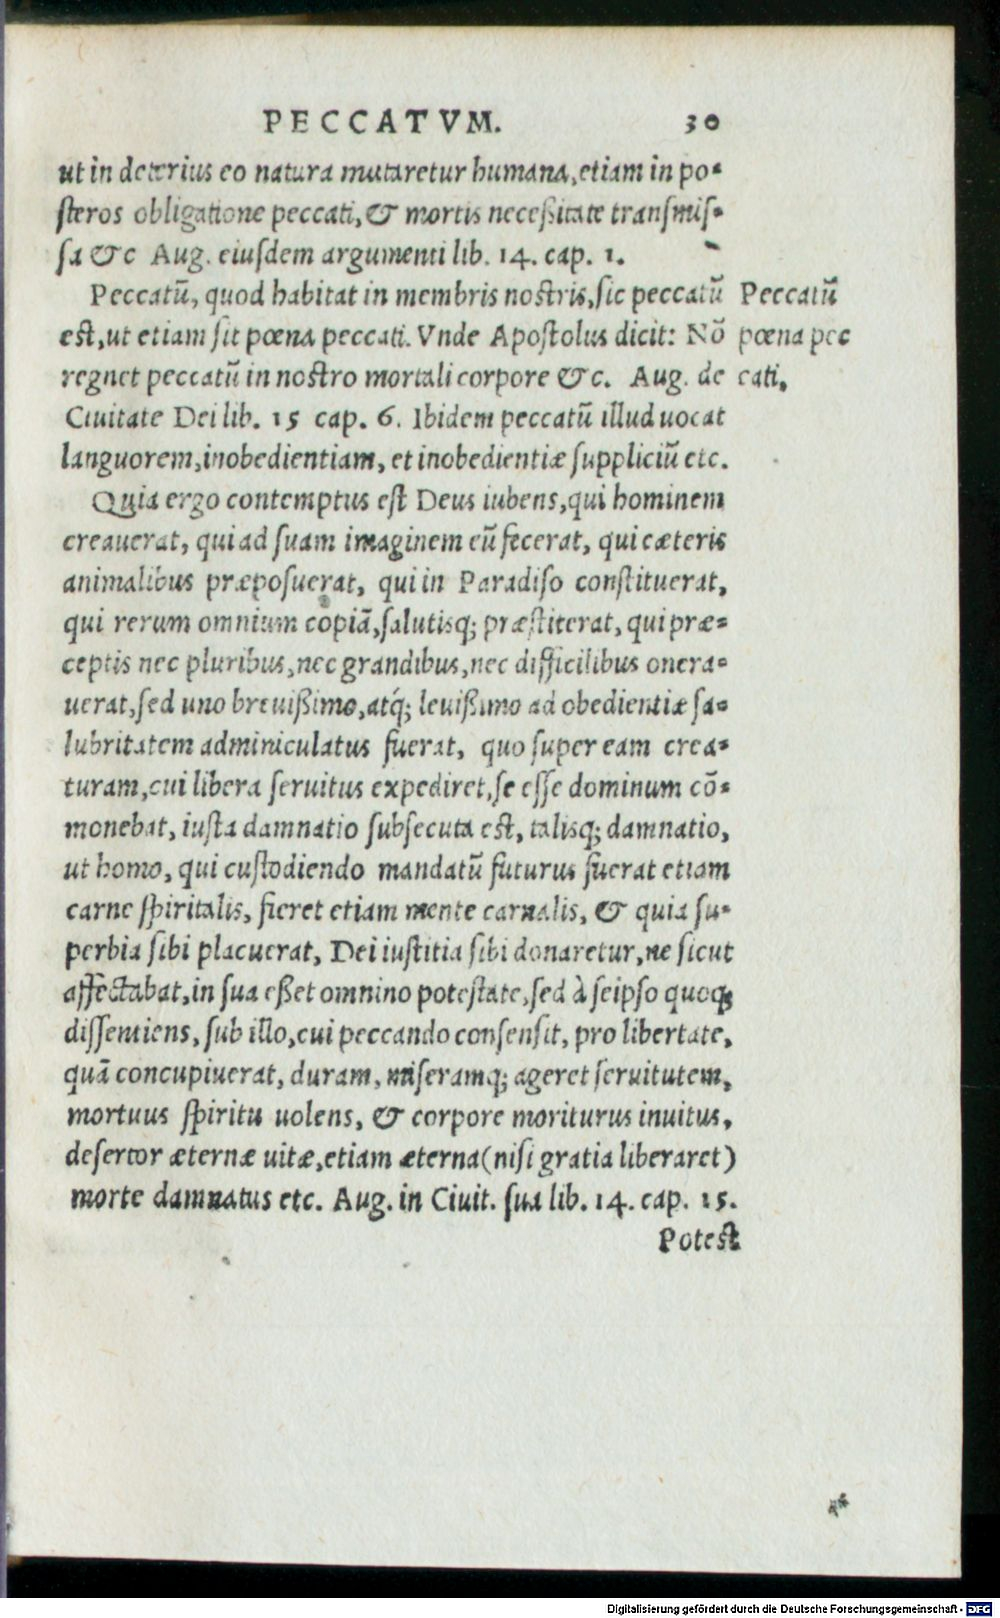 PECCATVM. 30
ut in deterius eo natura mutaretur humana, etiam in po-
steros obligatione peccati, & mortis neceßitate transmis-
sa &c Aug. eiusdem argumenti lib. 14. cap. 1.
Peccatũ, quod habitat in membris nostris, sic peccatũ
est, ut etiam sit pœna peccati. Vnde Apostolus dicit: Nõ
regnet peccatũ in nostro mortali corpore &c. Aug. de
Ciuitate Dei lib. 15 cap. 6. Ibidem peccatũ illud uocat
languorem, inobedientiam, et inobedientiæ suppliciũ etc.
Peccatũ
pœna pec
cati,
Quia ergo contemptus est Deus iubens, qui hominem
creauerat, qui ad suam imaginem eũ fecerat, qui cæteris
animalibus præposuerat, qui in Paradiso constituerat,
qui rerum omnium copiã, salutisq; præstiterat, qui præ-
ceptis nec pluribus, nec grandibus, nec difficilibus onera-
uerat, sed uno breuißimo, atq́; leuißimo ad obedientiæ sa-
lubritatem adminiculatus fuerat, quo super eam crea-
turam, cui libera seruitus expediret, se esse dominum cõ-
monebat, iusta damnatio subsecuta est, talisq; damnatio,
ut homo, qui custodiendo mandatũ futurus fuerat etiam
carne spiritalis, fieret etiam mente carnalis, & quia su-
perbia sibi placuerat, Dei iustitia sibi donaretur, ne sicut
affectabat, in sua eßet omnino potestate, sed à seipso quoq;
dissentiens, sub illo, cui peccando consensit, pro libertate,
quã concupiuerat, duram, miseramq; ageret seruitutem,
mortuus spiritu uolens, & corpore moriturus inuitus,
desertor æternæ uitæ, etiam æterna (nisi gratia liberaret)
morte damnatus etc. Aug. in Ciuit. sua lib. 14. cap. 15.
Potest
Digitalisierung gefördert durch die Deutsche Forschungsgemeinschaft - DFG